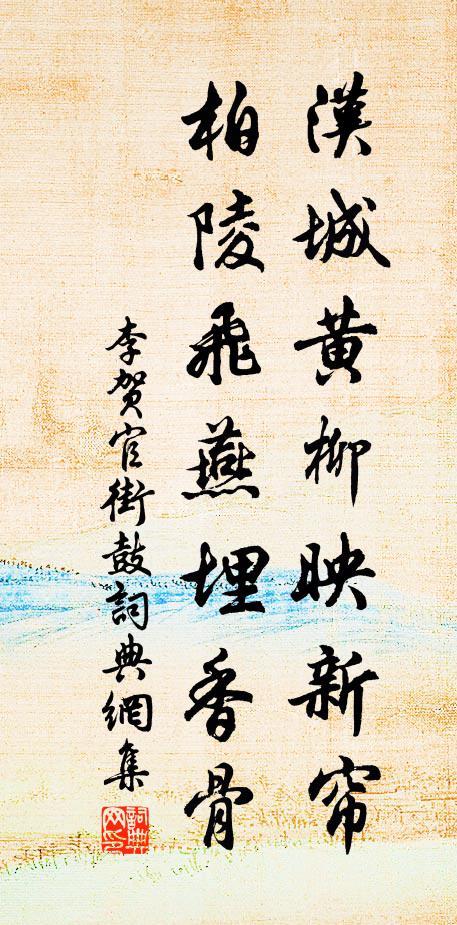 漢城黄柳映新帘
柏陵飛燕埋香骨
李贺官街鼓詞典網集
詞典网印